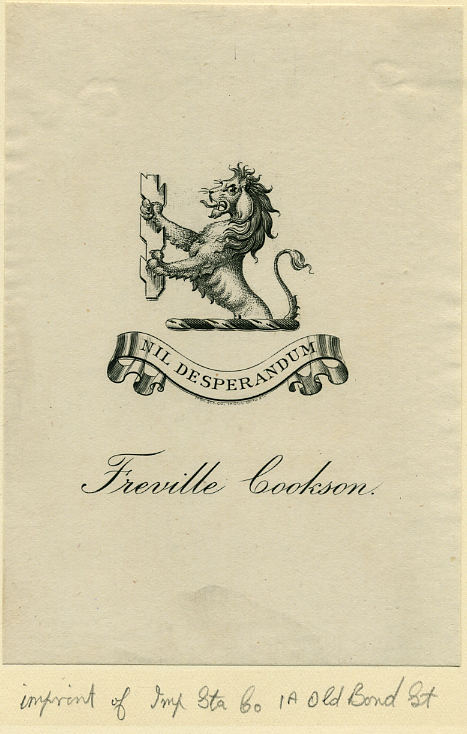 NIL DESPERANDUM
Freville Cookson.
imprint of Imp Sta Co 1A Old Bond St